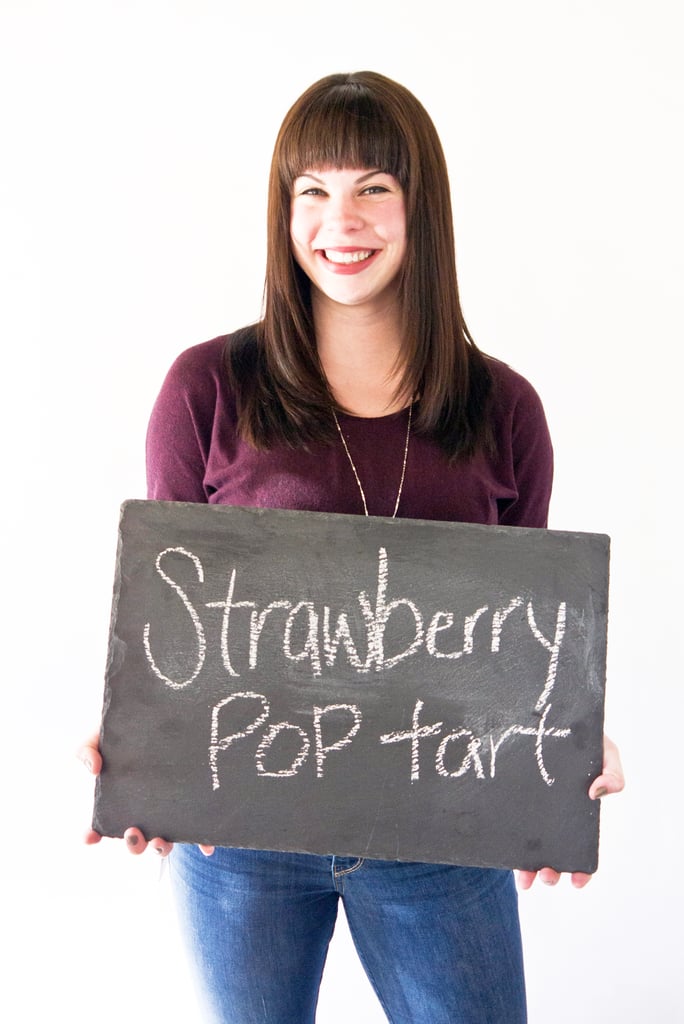 Strawberry
POP tart